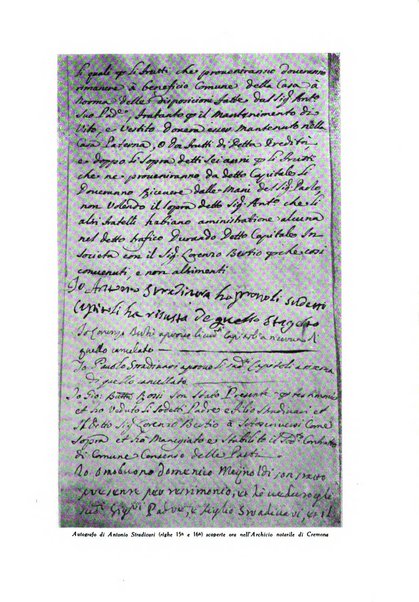 li quali p li frutti che proveniranno doveranno
rimanere à beneficio Comune della Casa à
norma delle disposizione fatte dal Sig. Anto
suo Padre, Intanto p il Mantenimento di
Vito e Vestito doverà esser Mantenuto nella
Casa Paterna, O da frutti di detta eredità
e doppo li sopra detti sei anni p li frutti
che ne proveniranno da detto Capitale li
doveranno Ricevere delle Mani del Sig. Paolo,
non Volendo il sopra detto Sig. Anto che li
altri fratelli habiano aministratione alcuna
nel detto trafico durando detto Capitale In
Società con il Sig. Lorenzo Bertio p che cosi
convenuti e non altrimenti
Io Antonio Stradivari ho aprovo li sudetti
Capitoli
Io Lorenzo Bertio aprovo li Capitoli
quello anulato
Io Paulo Stradivari aprovo li Capitoli
di quello anulato
Io Gio. Batta Rossi son Stato Presente p testimonio
et ho veduto li sodetti Padre e Filio Stradivari et
il detto Sig. Lorenzo Bertio à Sotoscriversi Come
Sopra et ho Manegiato e Stabilito il Contratto
di Comune Consenso delle Parti
Io omobuono domenico son stato
presente per testimonio, et ho veduto
Padre, e figlio Stradivari, et il
Autografo di Antonio Stradivari (righe 15ª e 16ª) scoperte ora nell'Archivio notarile di Cremona